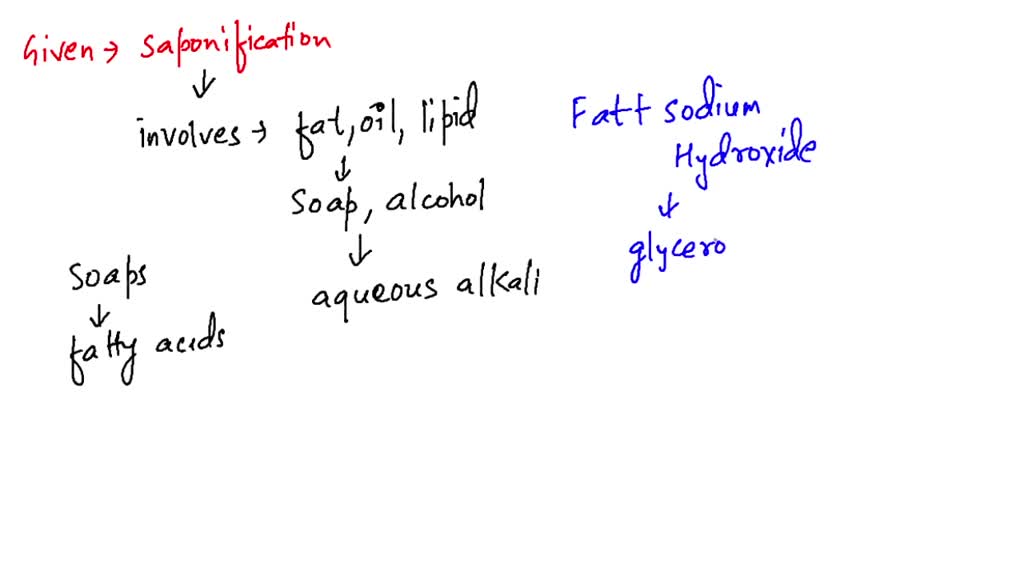 Given → saponification
↓
involves → fat, oil, lipid
↓
Soap, alcohol
↓
aqueous alkali
Soaps
↓
fatty acids
Fat + sodium
Hydroxide
↓
glycero